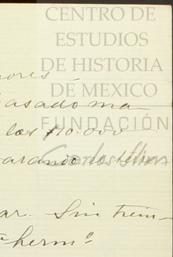 CENTRO DE
ESTUDIOS
DE HISTORIA
DE MEXICO
FUNDACIÓN
Carlos Slim
ores
asado ma-
los $10.000
arando
ar. Sin
herm°